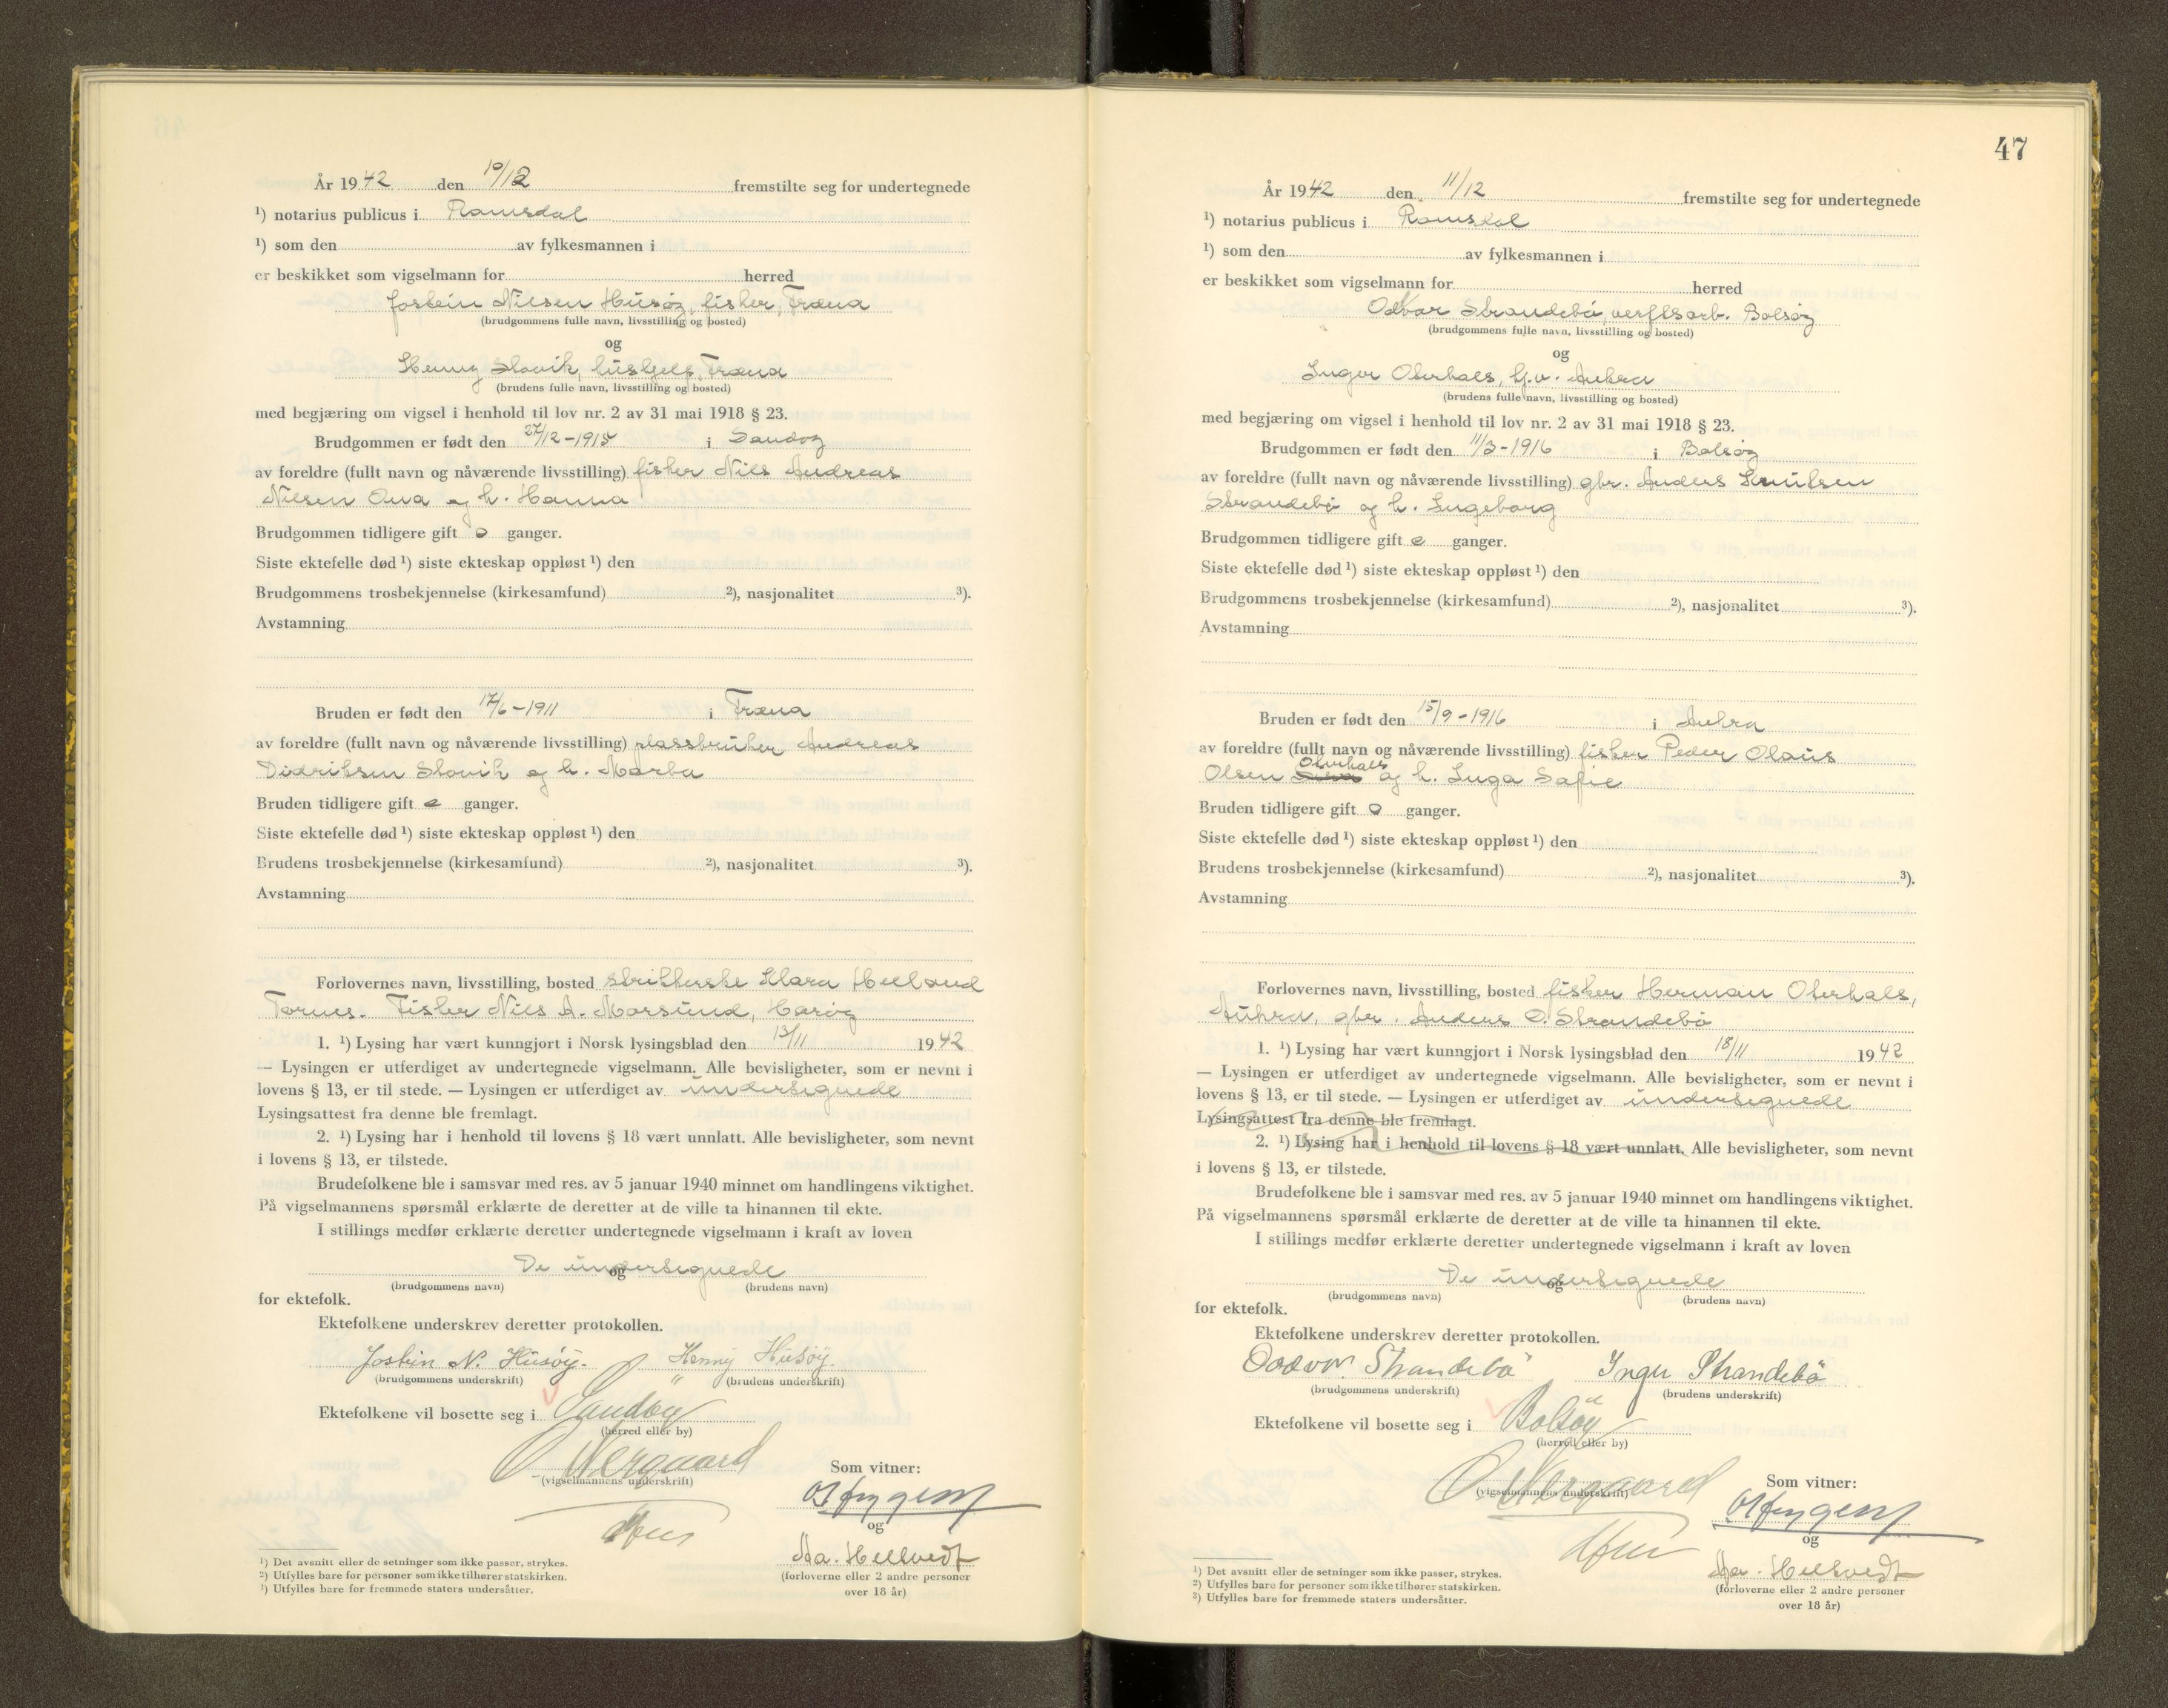 År 1942 den 10/12 fremstilte seg for undertegnede
¹) notarius publicus i Romsdal
¹) som den av fylkesmannen i
er beskikket som vigselmann for herred
Jostein Nilsen Husøy, fisker, Træna
(brudgommens fulle navn, livsstilling og bosted)
og
Henny Slovik, hushjelp, Træna
(brudens fulle navn, livsstilling og bosted)
med begjæring om vigsel i henhold til lov nr. 2 av 31 mai 1918 § 23.
Brudgommen er født den 27/12-1915 i Sandøy
av foreldre (fullt navn og nåværende livsstilling) fisker Nils Andreas
Nilsen Ona og h. Hanna
Brudgommen tidligere gift 0 ganger.
Siste ektefelle død ¹) siste ekteskap oppløst ¹) den
Brudgommens trosbekjennelse (kirkesamfund) ²), nasjonalitet ³).
Avstamning
Bruden er født den 17/6-1911 i Træna
av foreldre (fullt navn og nåværende livsstilling) plassbruker Andreas
Didriksen Slovik og h. Marta
Bruden tidligere gift 0 ganger.
Siste ektefelle død ¹) siste ekteskap oppløst ¹) den
Brudens trosbekjennelse (kirkesamfund) ²), nasjonalitet ³).
Avstamning
Forlovernes navn, livsstilling, bosted strikkerske Klara Helland
Tornes. Fisker Nils A. Morsund, Harøy
1. ¹) Lysing har vært kunngjort i Norsk lysingsblad den 13/11 1942
— Lysingen er utferdiget av undertegnede vigselmann. Alle bevisligheter, som er nevnt i
lovens § 13, er til stede. — Lysingen er utferdiget av undertegnede
Lysingsattest fra denne ble fremlagt.
2. ¹) Lysing har i henhold til lovens § 18 vært unnlatt. Alle bevisligheter, som nevnt
i lovens § 13, er tilstede.
Brudefolkene ble i samsvar med res. av 5 januar 1940 minnet om handlingens viktighet.
På vigselmannens spørsmål erklærte de deretter at de ville ta hinannen til ekte.
I stillings medfør erklærte deretter undertegnede vigselmann i kraft av loven
De undertegnede
og
(brudgommens navn) (brudens navn)
for ektefolk.
Ektefolkene underskrev deretter protokollen.
Jostein N. Husöy. Henny Husöy.
(brudgommens underskrift) (brudens underskrift)
Ektefolkene vil bosette seg i Sandöy
(herred eller by)
O. Nergaard
(vigselmannens underskrift)
Som vitner:
og
Aa. Hellvedt
(forloverne eller 2 andre personer
over 18 år)
¹) Det avsnitt eller de setninger som ikke passer, strykes.
²) Utfylles bare for personer som ikke tilhører statskirken.
³) Utfylles bare for fremmede staters undersåtter.
47
År 1942 den 11/12 fremstilte seg for undertegnede
¹) notarius publicus i Romsdal
¹) som den av fylkesmannen i
er beskikket som vigselmann for herred
Odvar Strandebø, verftsarb. Bolsøy
(brudgommens fulle navn, livsstilling og bosted)
og
Inger Oterhals, hj.v. Aukra
(brudens fulle navn, livsstilling og bosted)
med begjæring om vigsel i henhold til lov nr. 2 av 31 mai 1918 § 23.
Brudgommen er født den 11/3-1916 i Bolsøy
av foreldre (fullt navn og nåværende livsstilling) gbr. Anders Knutsen
Strandebø og h. Ingeborg
Brudgommen tidligere gift 0 ganger.
Siste ektefelle død ¹) siste ekteskap oppløst ¹) den
Brudgommens trosbekjennelse (kirkesamfund) ²), nasjonalitet ³).
Avstamning
Bruden er født den 15/9-1916 i Aukra
av foreldre (fullt navn og nåværende livsstilling) fisker Peder Olaus
Olsen Oterhals og h. Inga Sofie
Bruden tidligere gift 0 ganger.
Siste ektefelle død ¹) siste ekteskap oppløst ¹) den
Brudens trosbekjennelse (kirkesamfund) ²), nasjonalitet ³).
Avstamning
Forlovernes navn, livsstilling, bosted fisker Herman Oterhals,
Aukra, gbr. Anders O. Strandebø
1. ¹) Lysing har vært kunngjort i Norsk lysingsblad den 18/11 1942
— Lysingen er utferdiget av undertegnede vigselmann. Alle bevisligheter, som er nevnt i
lovens § 13, er til stede. — Lysingen er utferdiget av undertegnede
Lysingsattest fra denne ble fremlagt.
2. ¹) Lysing har i henhold til lovens § 18 vært unnlatt. Alle bevisligheter, som nevnt
i lovens § 13, er tilstede.
Brudefolkene ble i samsvar med res. av 5 januar 1940 minnet om handlingens viktighet.
På vigselmannens spørsmål erklærte de deretter at de ville ta hinannen til ekte.
I stillings medfør erklærte deretter undertegnede vigselmann i kraft av loven
De undertegnede
og
(brudgommens navn) (brudens navn)
for ektefolk.
Ektefolkene underskrev deretter protokollen.
Oddvar Strandebö Inger Strandebö
(brudgommens underskrift) (brudens underskrift)
Ektefolkene vil bosette seg i Bolsöy
(herred eller by)
O. Nergaard
(vigselmannens underskrift)
Som vitner:
og
Aa. Hellvedt
(forloverne eller 2 andre personer
over 18 år)
¹) Det avsnitt eller de setninger som ikke passer, strykes.
²) Utfylles bare for personer som ikke tilhører statskirken.
³) Utfylles bare for fremmede staters undersåtter.